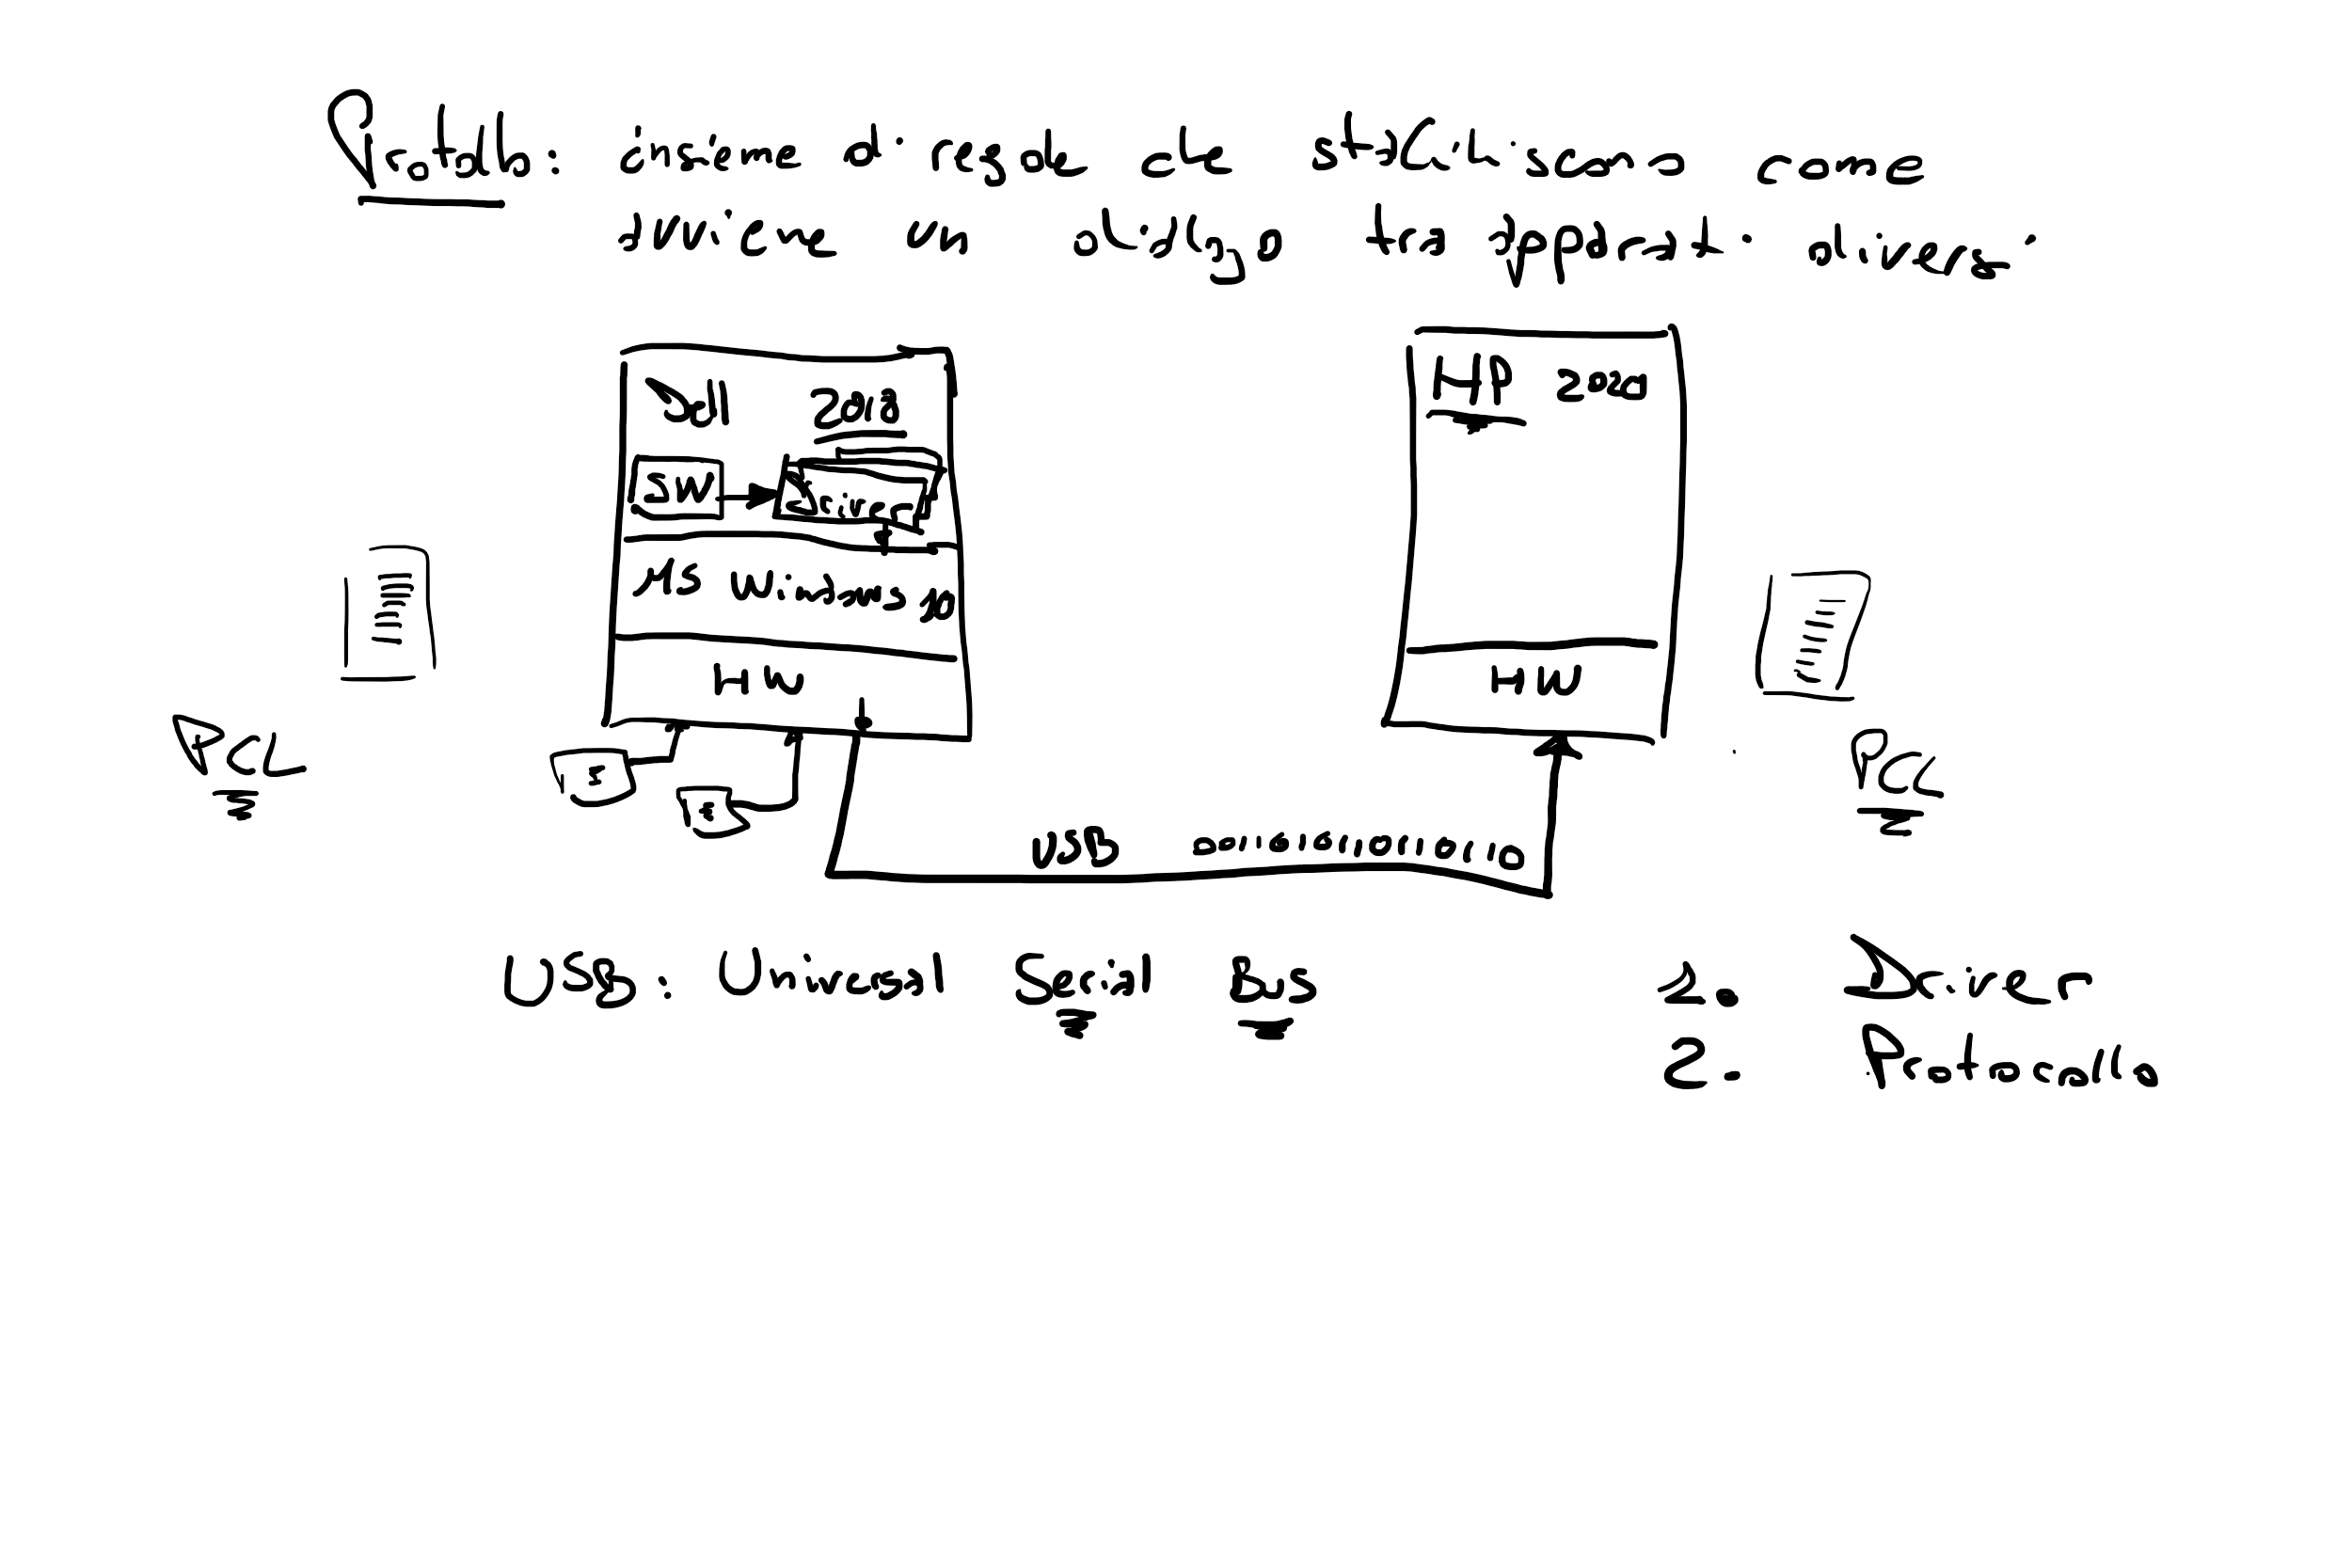 Protocollo: insieme di regole che stabiliscono come
avviene un dialogo tra apparati diversi
Dell 2018
HP 2020
SW
Driver
MS Windows 10
HW
HW
PCL
PCL
USB
USB: Universal Serial Bus
1. Driver
2. Protocollo